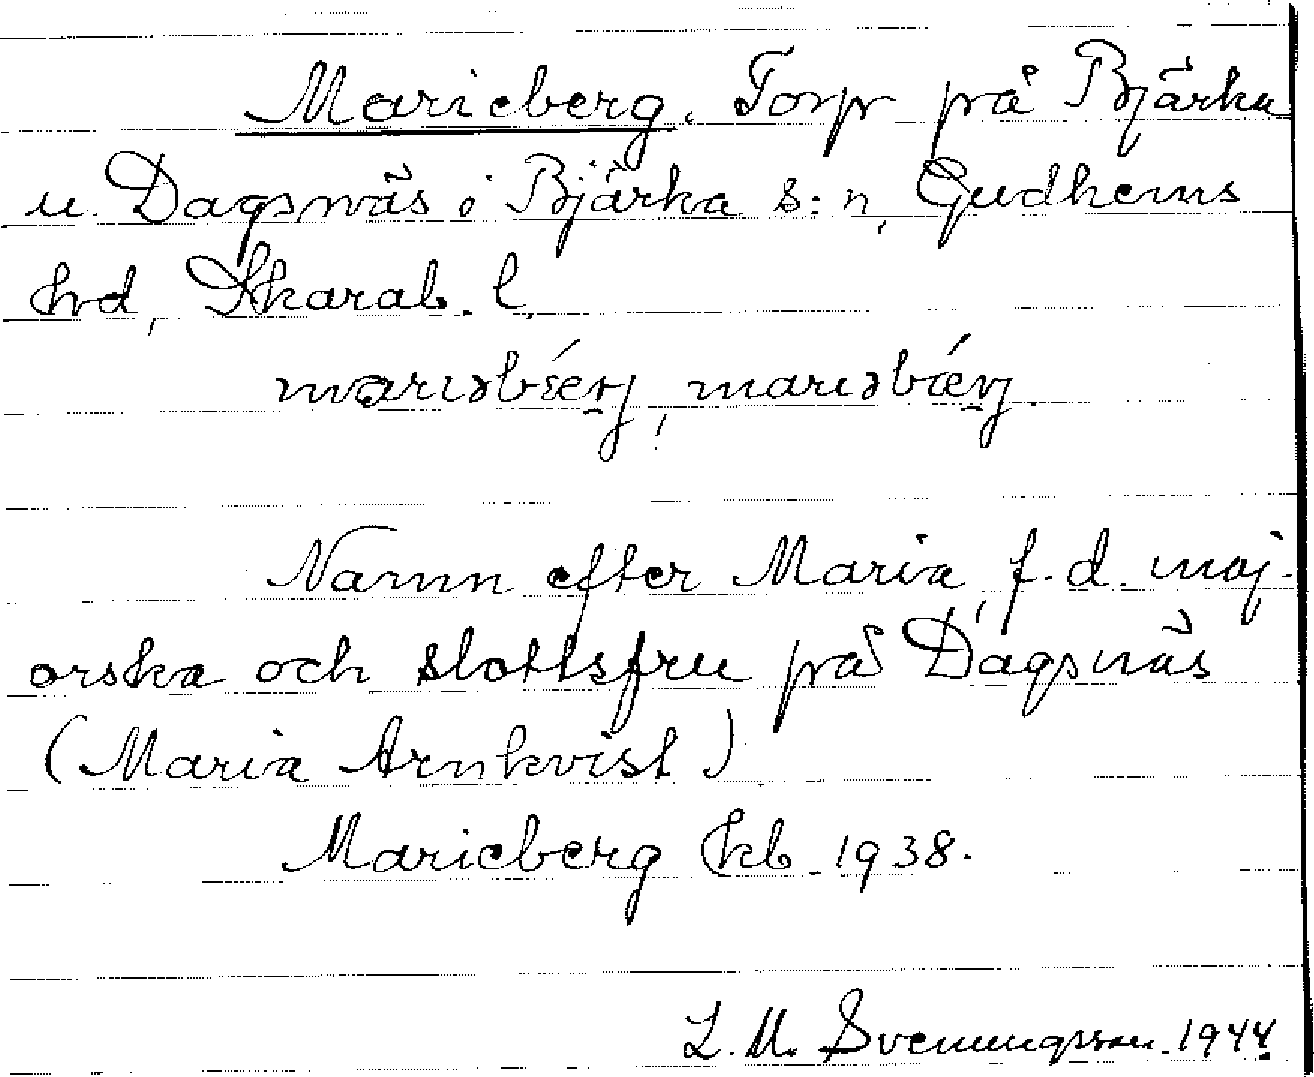 Marieberg. Torp på Bjärka
u. Dagsnäs i Bjärka s:n, Gudhems
hd, Skarab. l.
marıəbǽrj, marıəbǽrj.
Namn efter Maria, f.d. maj-
orska och slottsfru på Dagsnäs
(Maria Arnkvist)
Marieberg kb 1938.
L. M. Svenungsson 1944